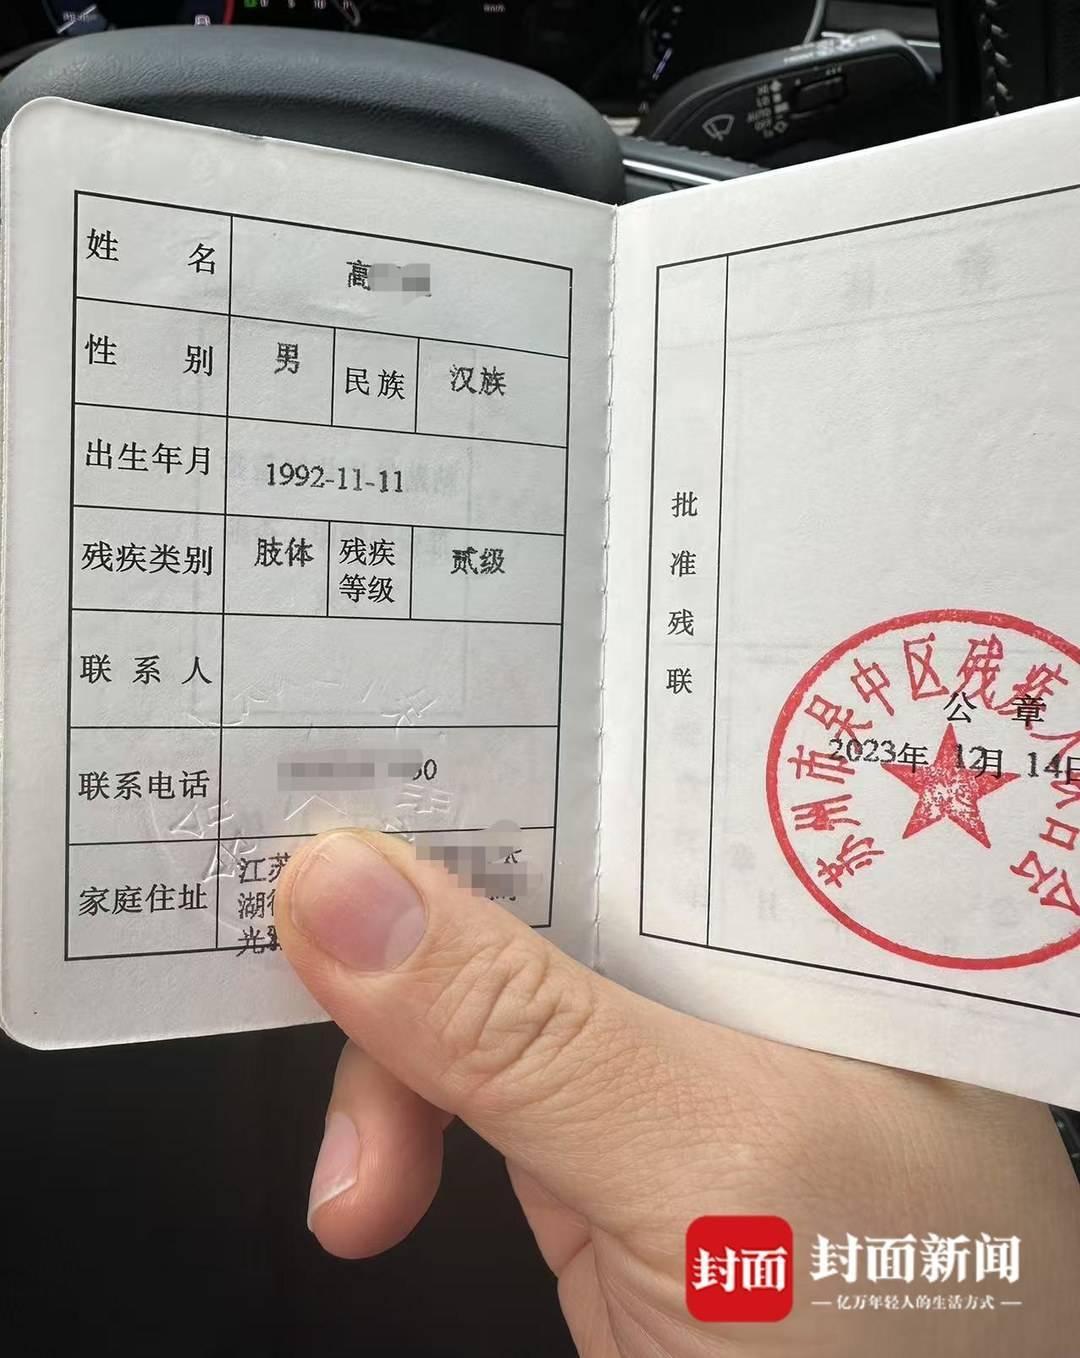 姓名 高
性别 男 民族 汉族
出生年月 1992-11-11
残疾类别 肢体 残疾等级 贰级
联系人
联系电话 60
家庭住址 江苏
湖
光
批准残联
苏州市吴中区残疾人
公章
2023年 12月 14日
封面
封面新闻
亿万年轻人的生活方式